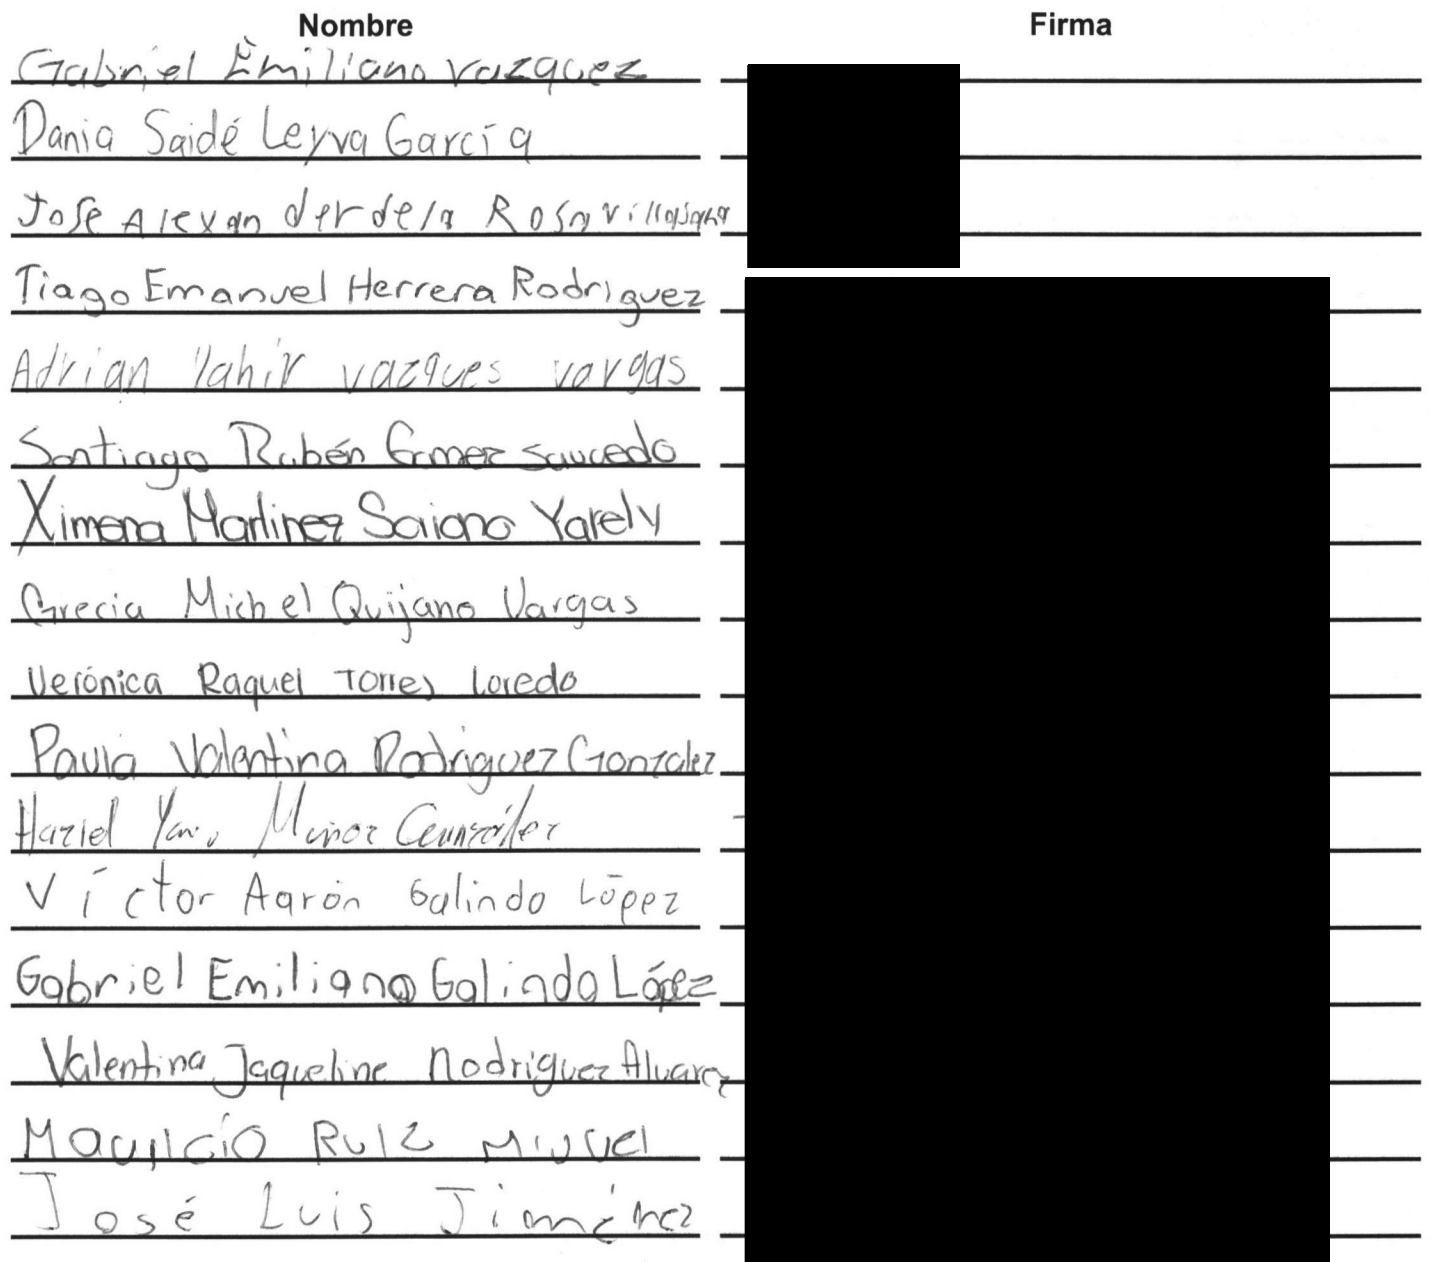 Nombre Firma
Gabriel Emiliano Vazquez
Dania Saidé Leyva García
Jose Alexander de la Rosa Villasana
Tiago Emanuel Herrera Rodriguez
Adrian Yahir vazques vargas
Santiago Rubén Gamez Saucedo
Ximena Martinez Yarely
Grecia Michel Quijano Vargas
Verónica Raquel Torres Loredo
Paula Valentina Rodriguez Gonzalez
Haziel Muñoz
Víctor Aarón Galindo López
Gabriel Emiliano Galindo López
Valentina Jaqueline Rodriguez Alvarez
Mauricio Ruiz Miguel
José Luis Jiménez